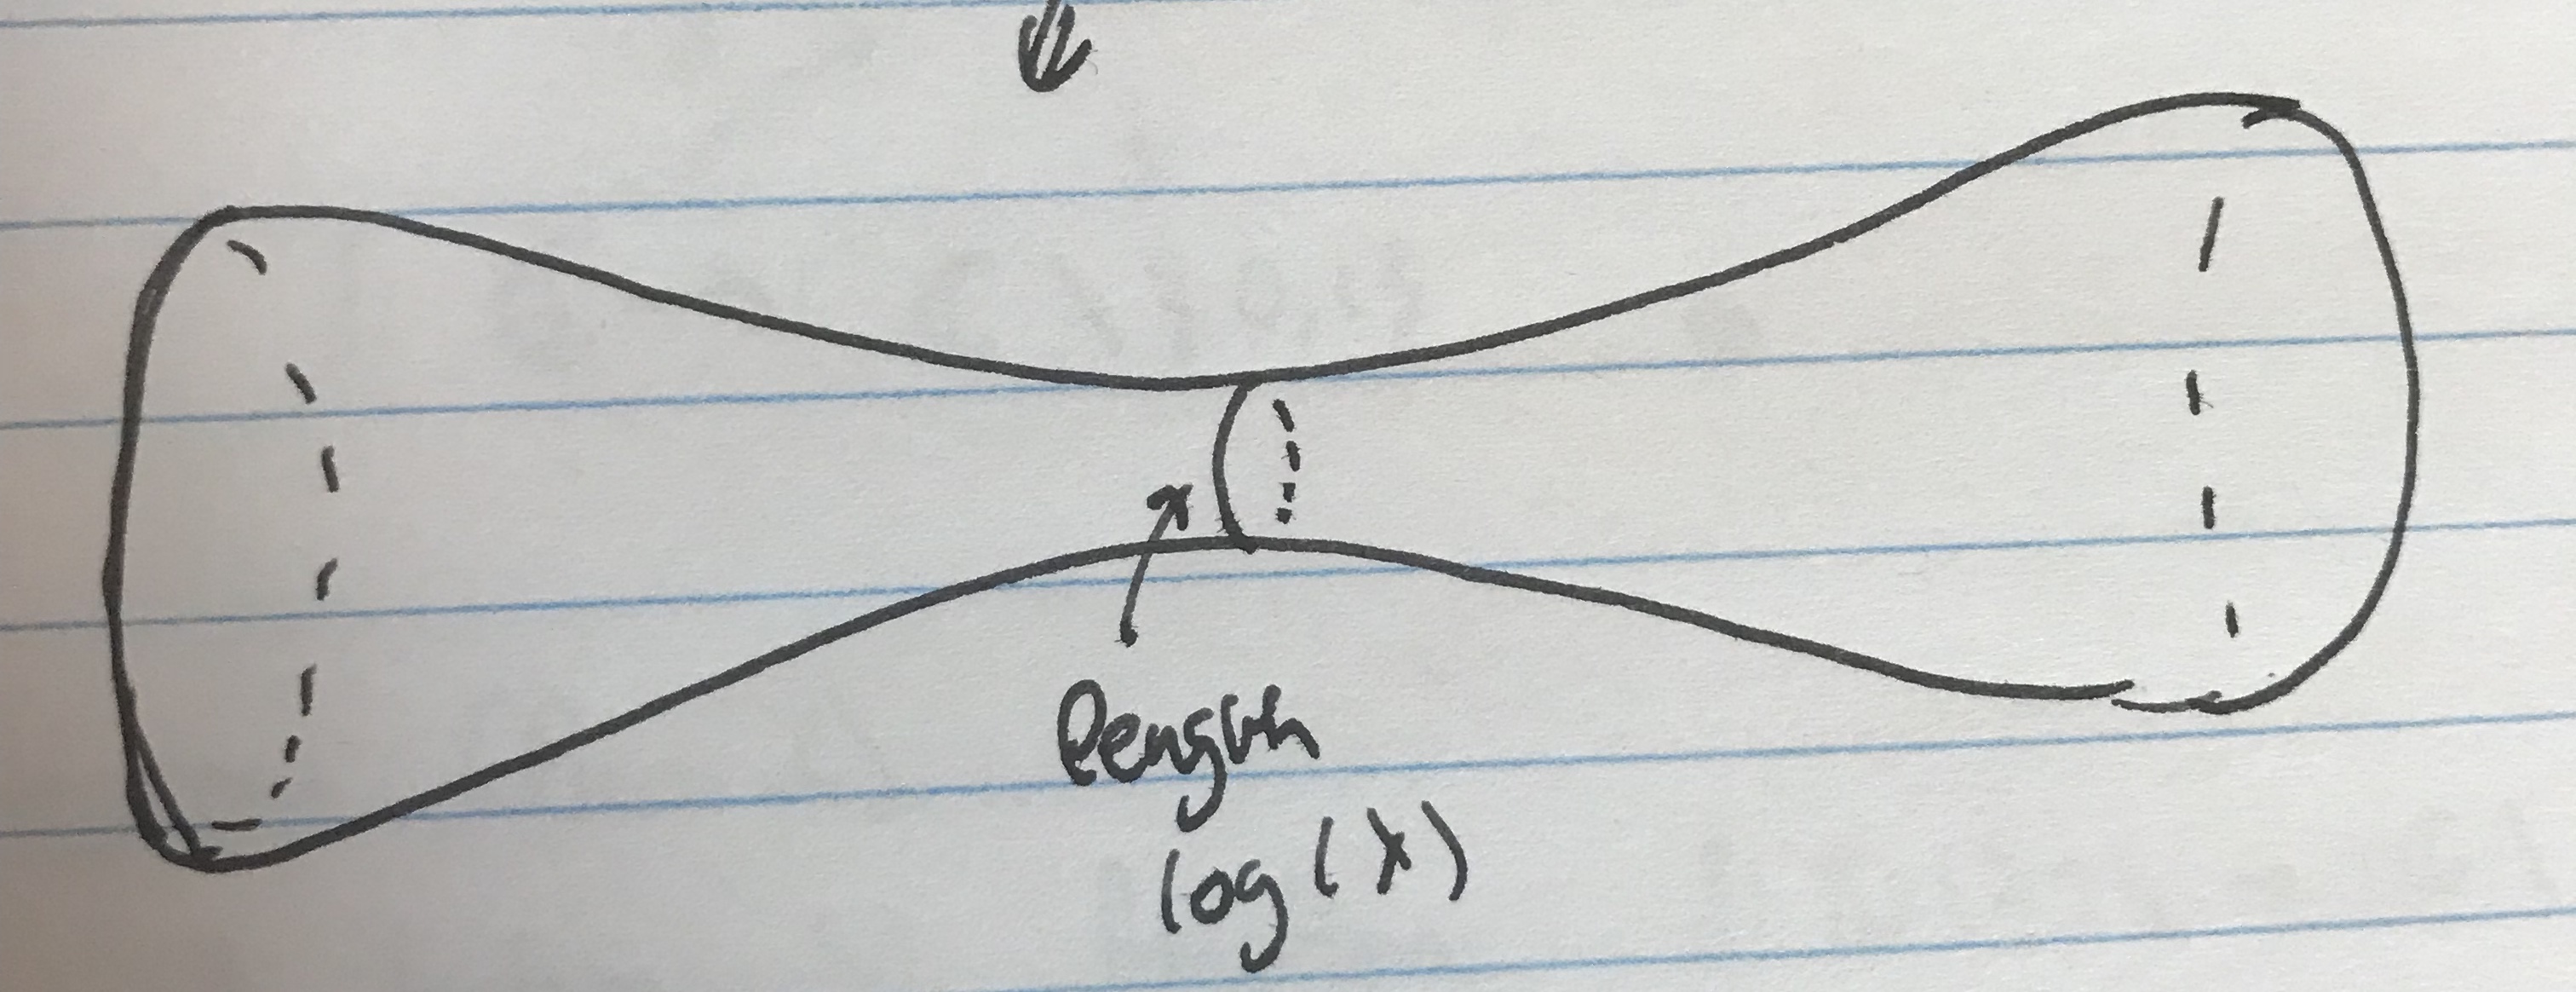 length
log(λ)